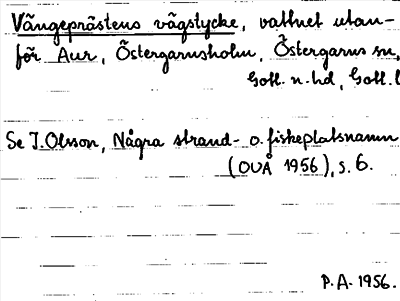 Vängeprästens vägstycke, vattnet utan-
för Aur, Östergarnsholm, Östergarns sn,
Gotl. n. hd, Gotl. l
Se I. Olsson, Några strand- o. fiskeplatsnamn
(OUÅ 1956), s. 6.
P.A. 1956.